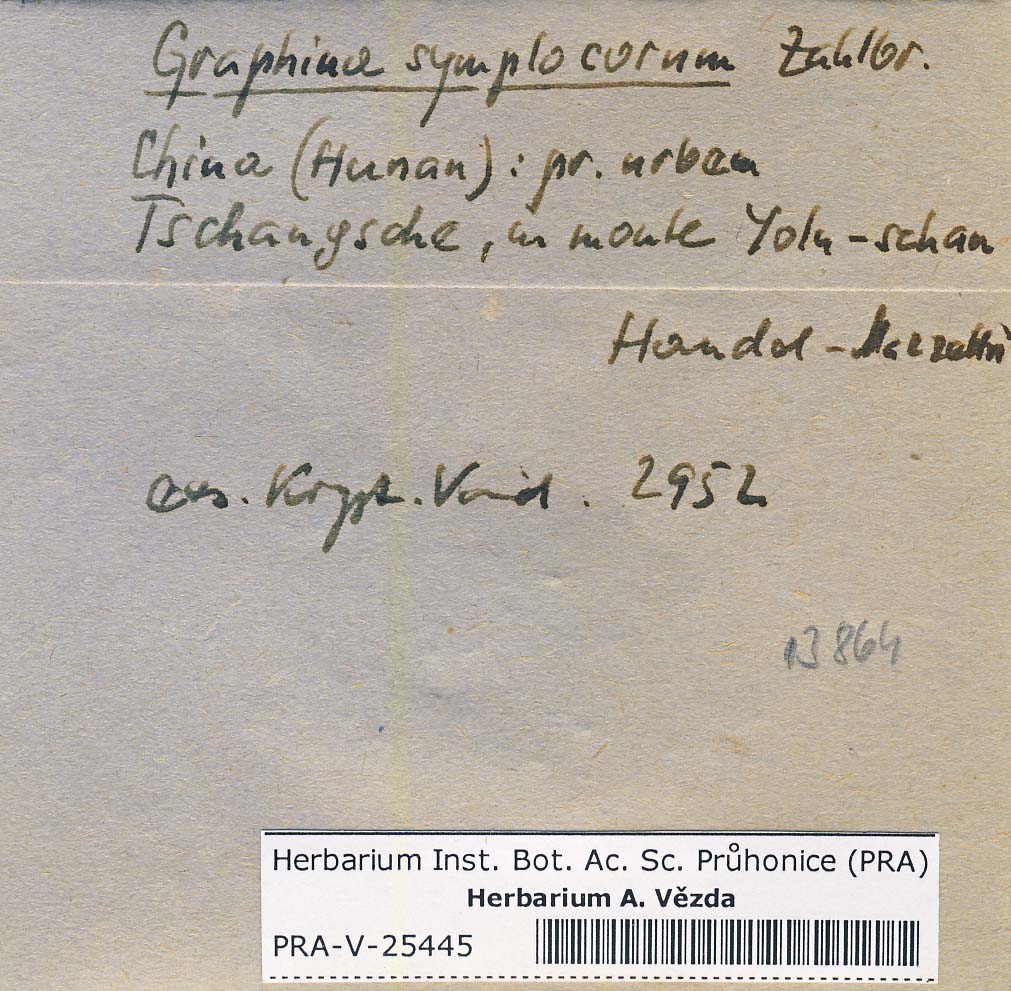 Graphina symplocorum Zahlbr.
China (Hunan): pr. urbem
Tschangsche, in monte Yolu-schan
Handel-Mazzetti
exs. Krypt. Vind. 2952
13864
Herbarium Inst. Bot. Ac. Sc. Průhonice (PRA)
Herbarium A. Vězda
PRA-V-25445